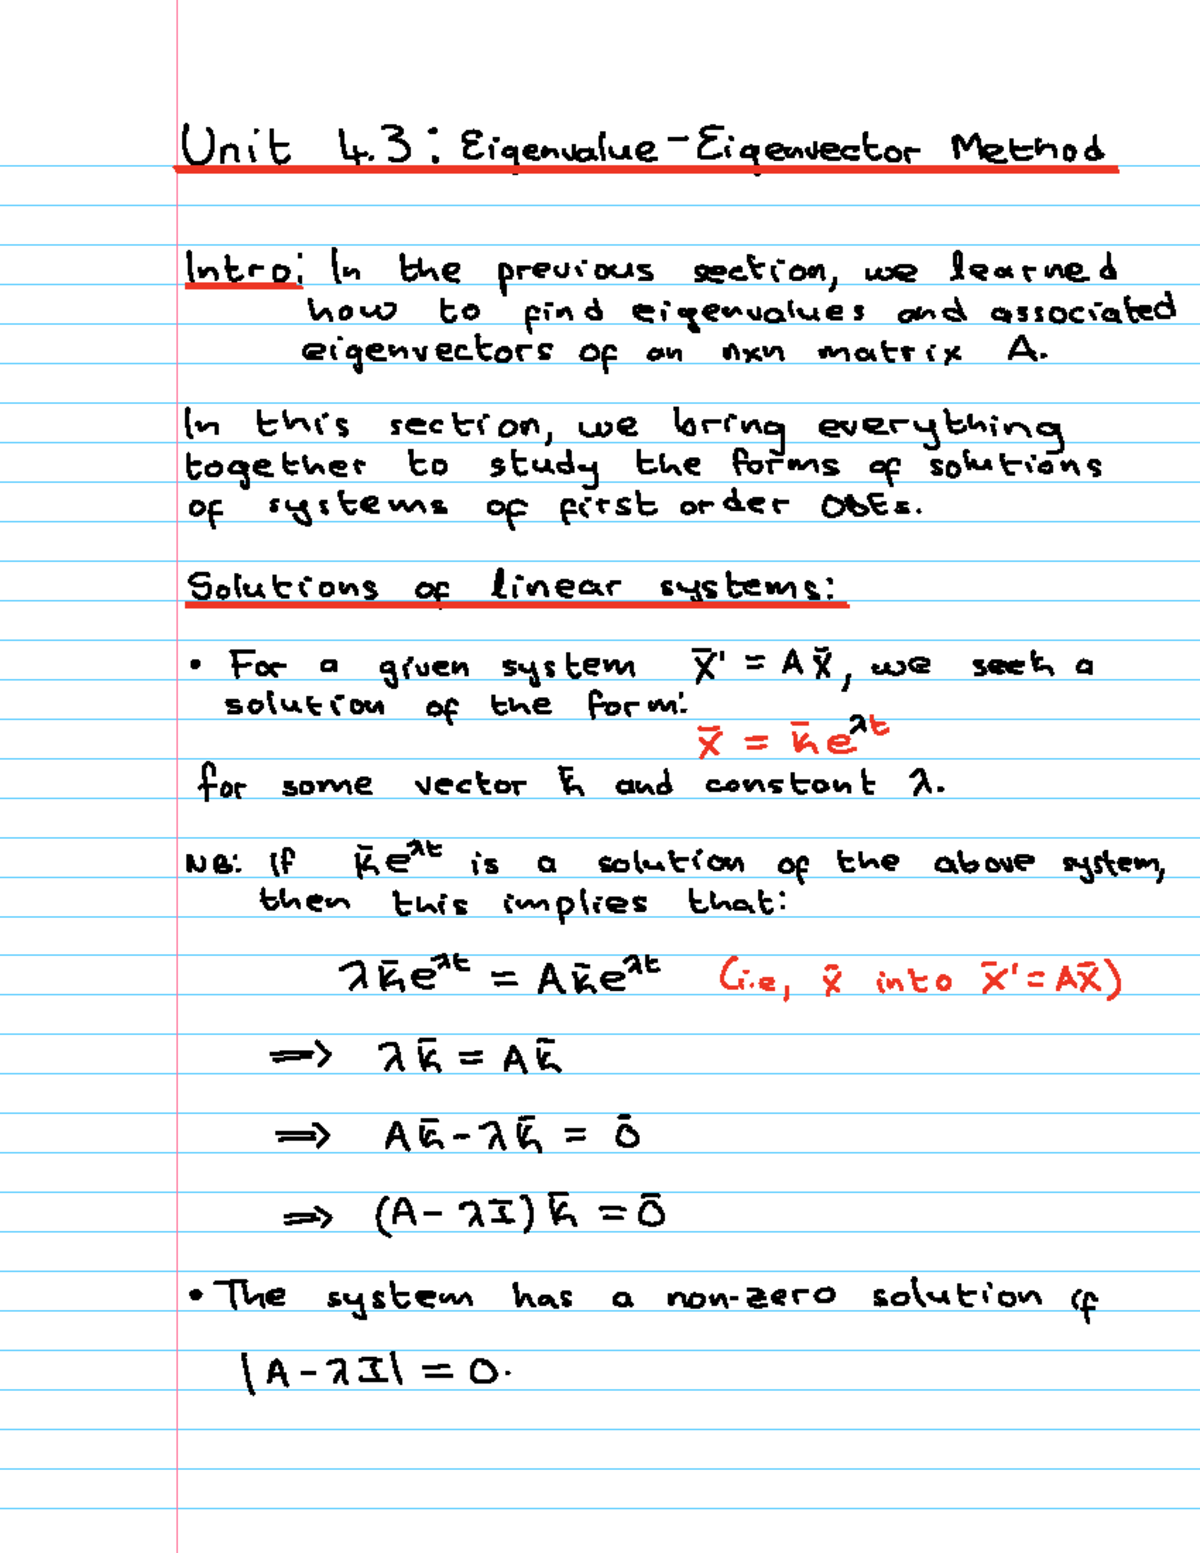 Unit 4.3: Eigenvalue-Eigenvector Method
Intro: In the previous section, we learned
how to find eigenvalues and associated
eigenvectors of an nxn matrix A.
In this section, we bring everything
together to study the forms of solutions
of systems of first order ODEs.
Solutions of linear systems:
• For a given system x̄' = Ax̄, we seek a
solution of the form:
x̄ = k̄e^λt
for some vector k̄ and constant λ.
NB: If k̄e^λt is a solution of the above system,
then this implies that:
λk̄e^λt = Ak̄e^λt (i.e, x̄ into x̄' = Ax̄)
⟹ λk̄ = Ak̄
⟹ Ak̄ - λk̄ = 0̄
⟹ (A - λI)k̄ = 0̄
• The system has a non-zero solution if
|A - λI| = 0.